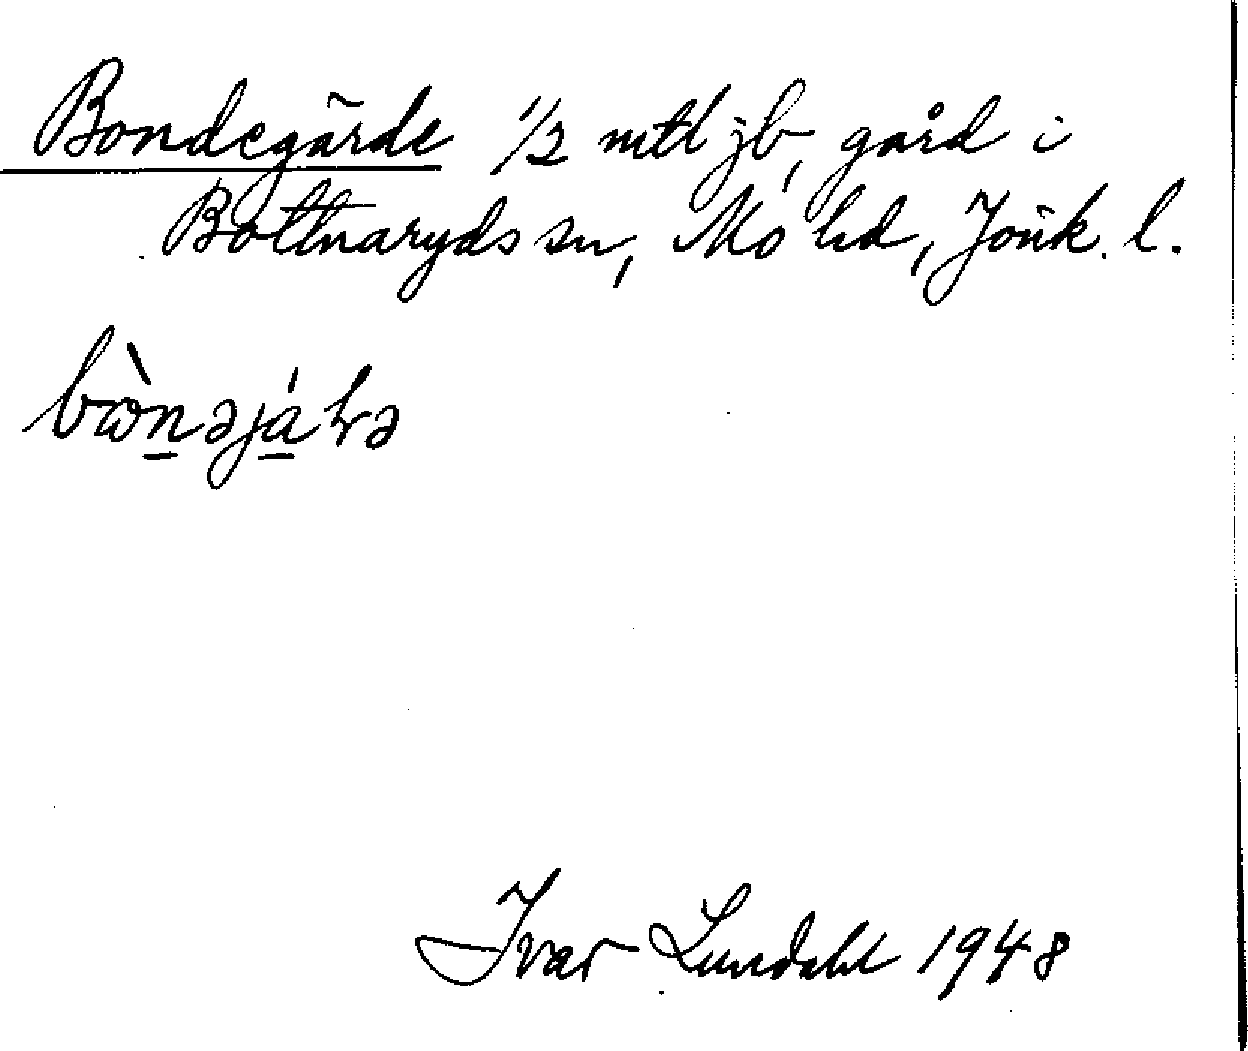 Bondegärde 1/2 mtl jb, gård i
Bottnaryds sn, Mo hd, Jönk. l.
Ivar Lundahl 1948